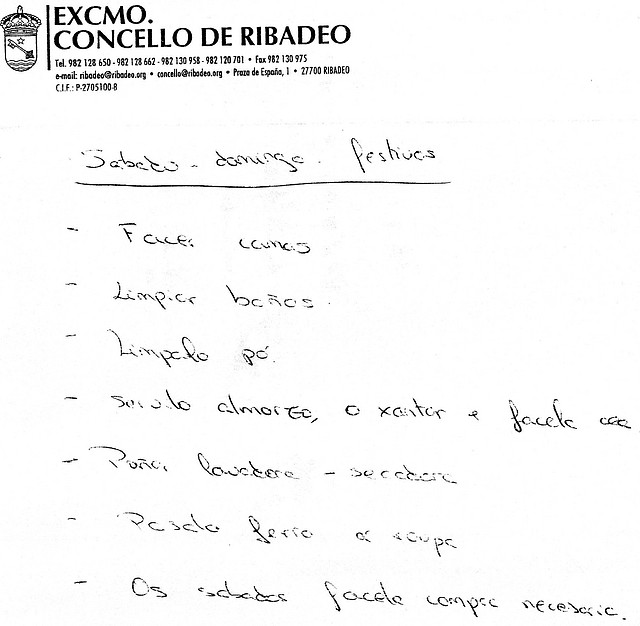 EXCMO.
CONCELLO DE RIBADEO
Tel. 982 128 650 - 982 128 662 - 982 130 958 - 982 120 701 • Fax 982 130 975
e-mail: ribadeo@ribadeo.org • concello@ribadeo.org • Praza de España, 1 • 27700 RIBADEO
C.I.F.: P-2705100-B
Sabado - domingo - festivos
- Facer camas
- Limpiar baños.
- Limpalo pó.
- Servilo almorzo, o xantar e facela cea
- Poñer lavadora - secadora
- Pasalo ferro á roupa
- Os sabados facela compra necesaria.